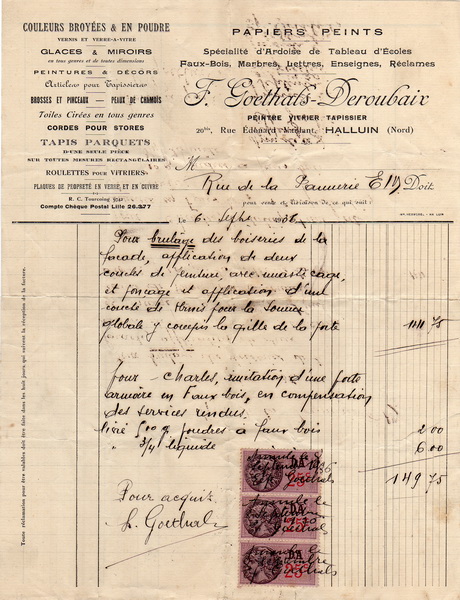 COULEURS BROYÉES & EN POUDRE
VERNIS ET VERRE-A-VITRE
GLACES & MIROIRS
en tous genres et de toutes dimensions
PEINTURES & DÉCORS
Articles pour Tapissiers
BROSSES ET PINCEAUX — PEAUX DE CHAMOIS
Toiles Cirées en tous genres
CORDES POUR STORES
TAPIS PARQUETS
D'UNE SEULE PIÈCE
SUR TOUTES MESURES RECTANGULAIRES
ROULETTES POUR VITRIERS
PLAQUES DE PROPRETÉ EN VERRE ET EN CUIVRE
R. C. Tourcoing 5741
Compte Chèque Postal Lille 26.377
PAPIERS PEINTS
Spécialité d'Ardoise de Tableau d'Écoles
Faux-Bois, Marbres, Lettres, Enseignes, Réclames
F. Goethals-Deroubaix
PEINTRE VITRIER TAPISSIER
20bis, Rue Édouard Vaillant, HALLUIN (Nord)
M
Rue de la Pannerie E /V Doit
pour vente et livraison de ce qui suit:
le 6 Sepbre 1936
Pour brulage des boiseries de la
façade, application de deux
couches de teinture, avec masticage,
et ponçage et application d'une
couche de vernis pour la somme
globale y compris la grille de la porte
111 75
pour Charles, imitation d'une porte
armoire en faux bois, en compensation
des services rendus.
livré 500 g poudres à faux bois 2 00
" 3/4 l liquide 6 00
149 75
Pour acquit
F. Goethals
DA
25
DA
25
DA
25
Toute réclamation pour être valable doit être faite dans les huit jours qui suivent la réception de la facture.